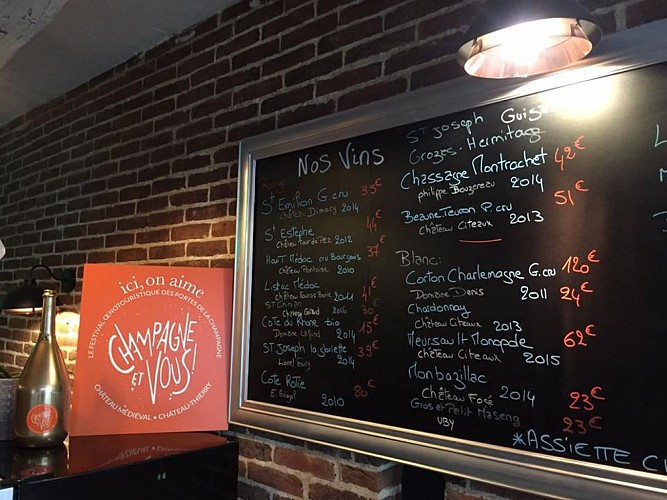 ici, on aime
LE FESTIVAL ŒNOTOURISTIQUE DES PORTES DE LA CHAMPAGNE
CHAMPAGNE
ET
VOUS!
CHÂTEAU MÉDIÉVAL • CHÂTEAU-THIERRY
Nos Vins
Rouge
St Emilion G.cru 35€
château 2014
St Estèphe 44€
2012
Haut Médoc cru Bourgeois 37€
château 2010
Listrac Médoc
2011
2016 30
Côte du Rhône bio 15€
2014
St Joseph la gloriette 39€
2014
Côte Rôtie 80€
E. Guigal 2010
St Joseph
Grozes-Hermitage
Chassagne Montrachet 42€
philippe Bouzereau 2014
51€
Beaune P.cru
château Citeaux 2013
Blanc:
Corton Charlemagne G.cru 120€
Domaine Denis 2011 24€
Chardonnay
Château Citeaux 2013
Meursault Monopole 62€
Château Citeaux 2015
Monbazillac
Château 2014 23€
Gros et Petit Manseng 23€
UBY
*ASSIETTE